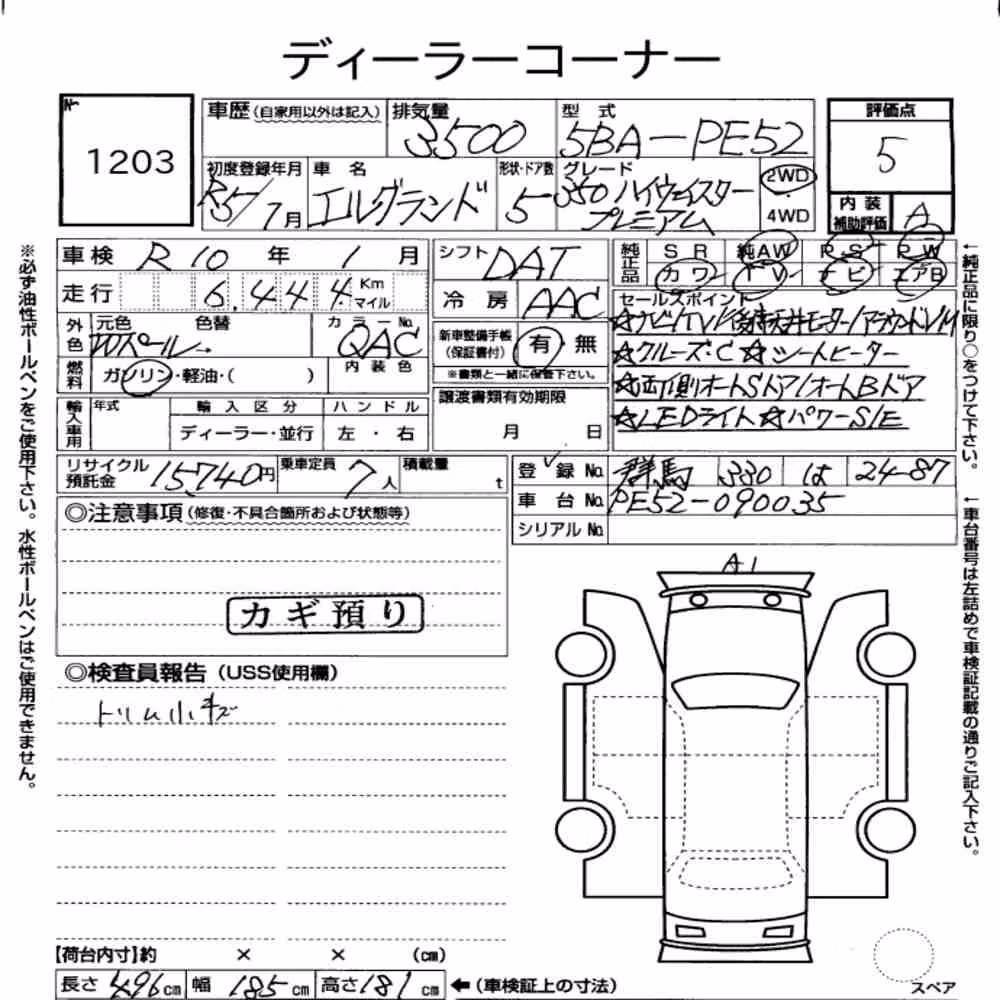 ディーラーコーナー
No.
1203
車歴 (自家用以外は記入)
排気量
3500
型 式
5BA-PE52
評価点
5
初度登録年月
R5/1月
車 名
エルグランド
形状・ドア数
5
グレード
350 ハイウェイスター
プレミアム
2WD
4WD
内 装
補助評価
A
車検 R10 年 1 月
シフト DAT
純正品
SR 純AW RS RW
カワ TV ナビ エアB
走行 6,444 Km マイル
冷 房 AAC
セールスポイント
☆ナビ/TV/後席天井モニター/アラウンドVM
外色
元色 色替
Wパール→
カラーNo.
QAC
新車整備手帳
(保証書付)
有・無
※書類と一緒に保管下さい。
☆クルーズ・C ☆シートヒーター
燃料
ガソリン・軽油・( )
内 装 色
☆両側オートSドア/オートBドア
輸入車用
年式
輸 入 区 分
ハ ン ド ル
ディーラー・並行
左 ・ 右
譲渡書類有効期限
月 日
☆LEDライト ☆パワーS/E
リサイクル
預託金 15,740円
乗車定員 7人
積載量 t
登 録 No. 群馬 330 は 24-87
車 台 No. PE52-090035
シリアル No.
◎注意事項 (修復・不具合箇所および状態等)
カギ預り
◎検査員報告 (USS使用欄)
トリム小キズ
A1
【荷台内寸】約 × × (cm)
長さ 496cm 幅 185cm 高さ 181cm ←(車検証上の寸法)
スペア
※必ず油性ボールペンをご使用下さい。水性ボールペンはご使用できません。
←純正品に限り○をつけて下さい。
←車台番号は左詰めで車検証記載の通りご記入下さい。